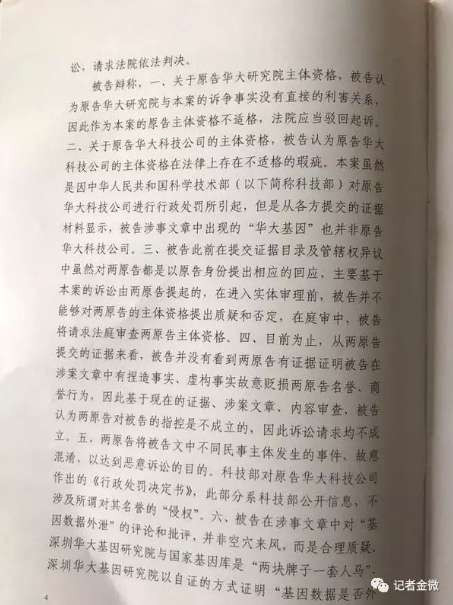 讼，请求法院依法判决。
被告辩称，一、关于原告华大研究院主体资格，被告认
为原告华大研究院与本案的诉争事实没有直接的利害关系，
因此作为本案的原告主体资格不适格，法院应当驳回起诉。
二、关于原告华大科技公司的主体资格，被告认为原告华大
科技公司的主体资格在法律上存在不适格的瑕疵。本案虽然
是因中华人民共和国科学技术部（以下简称科技部）对原告
华大科技公司进行行政处罚所引起，但是从各方提交的证据
材料显示，被告涉事文章中出现的“华大基因”也并非原告
华大科技公司。三、被告此前在提交证据目录及管辖权异议
中虽然对两原告都是以原告身份提出相应的回应，主要基于
本案的诉讼由两原告提起的，在进入实体审理前，被告并不
能够对两原告的主体资格提出质疑和否定，在庭审中，被告
将请求法庭审查两原告主体资格。四、目前为止，从两原告
提交的证据来看，被告并没有看到两原告有证据证明被告在
涉案文章中有捏造事实、虚构事实故意贬损两原告名誉、商
誉行为，因此基于现在的证据、涉案文章、内容审查，被告
认为两原告对被告的指控是不成立的，因此诉讼请求均不成
立。五、两原告将被告文中不同民事主体发生的事件，故意
混淆，以达到恶意诉讼的目的。科技部对原告华大科技公司
作出的《行政处罚决定书》，此部分系科技部公开信息，不
涉及所谓对其名誉的“侵权”。六、被告在涉事文章中对“基
因数据外泄”的评论和批评，并非空穴来风，而是合理质疑。
深圳华大基因研究院与国家基因库是“两块牌子一套人马”，
深圳华大基因研究院以自证的方式证明“基因数据是否外
4
记者金微